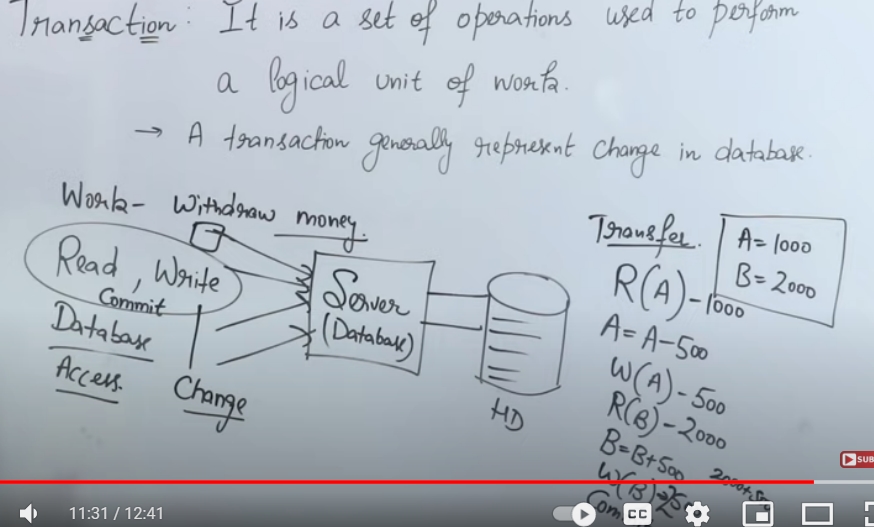 Transaction: It is a set of operations used to perform
a logical unit of work.
→ A transaction generally represent change in database.
Work - Withdraw money.
Read, Write
Commit
Database
Access.
Change
Server
(Database)
HD
Transfer.
A= 1000
B= 2000
R(A) - 1000
A = A-500
W(A) - 500
R(B) - 2000
B=B+500
W(B)
SUB
11:31 / 12:41
CC